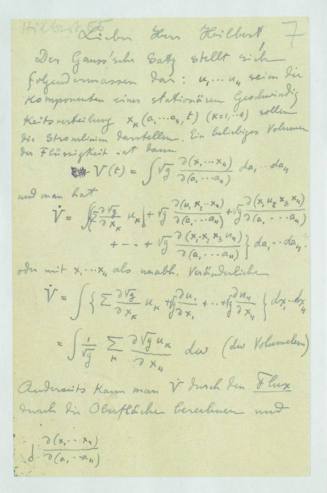 Hilbert 55
7
Lieber Herr Hilbert!
Der Gauss'sche Satz stellt sich
folgendermassen dar: u₁…u₄ seien die
Komponenten einer stationären Geschwindig
keitsverteilung xₖ(a₁…a₄, t) (k=1,..4) sollen
die Stromlinien darstellen. Ein beliebiges Volumen
der Flüssigkeit ist dann
V(t) = ∫ √g ∂(x₁…x₄)/∂(a₁…a₄) da₁…da₄
und man hat
V̇ = ∫{ Σ ∂√g/∂xₖ uₖ + √g ∂(u₁ x₂…x₄)/∂(a₁…a₄) + √g ∂(x₁ u₂ x₃ x₄)/∂(a₁…a₄)
+ … + √g ∂(x₁ x₂ x₃ u₄)/∂(a₁…a₄) } da₁…da₄
oder mit x₁…x₄ als unabh. Veränderliche
V̇ = ∫ { Σ ∂√g/∂xₖ uₖ + √g ∂u₁/∂x₁ + … + √g ∂u₄/∂x₄ } dx₁…dx₄
= ∫ 1/√g Σₖ ∂√g uₖ/∂xₖ dω (dω Volumelem)
Anderseits kann man V̇ durch den Flux
durch die Oberfläche berechnen und
d ∂(x₁…x₄)/∂(a₁…a₄)